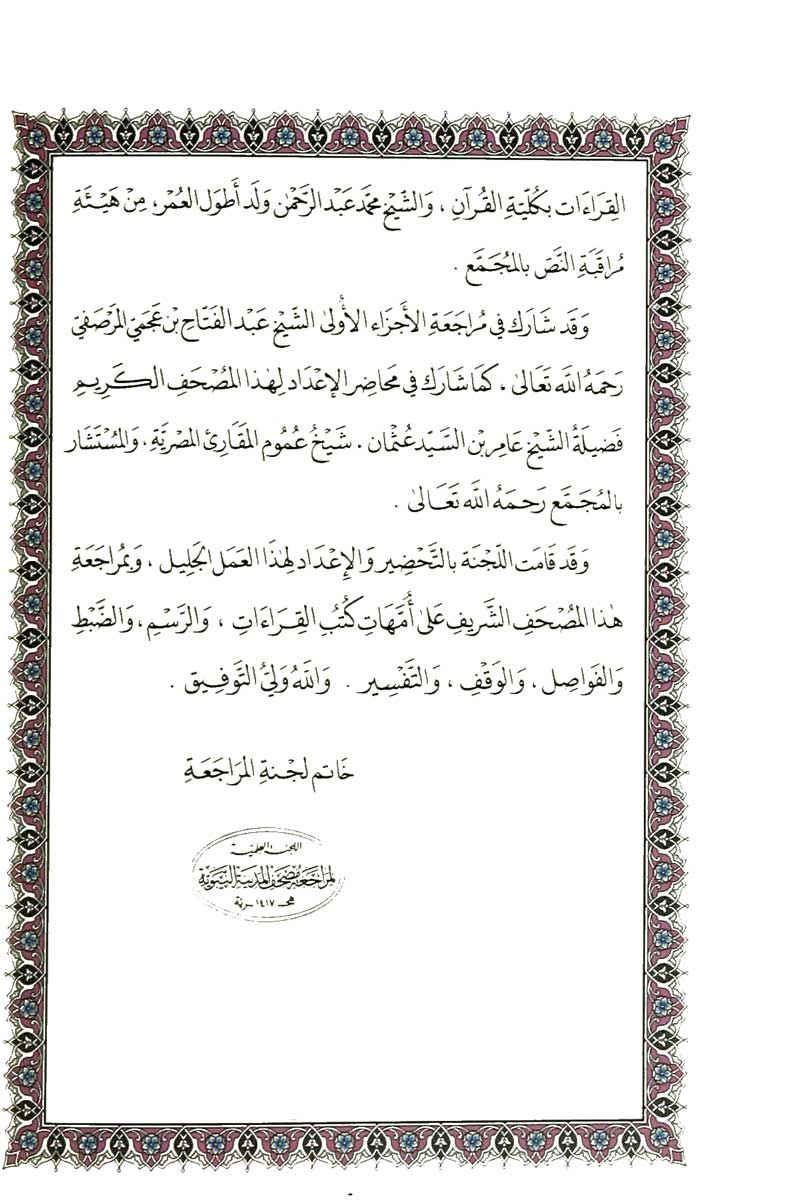 القِرَاءَات بكُليّةِ القُرآنِ ، وَالشّيْخ محمَّد عَبْد الرَّحمٰن وَلَد أَطوَل العُمْر، مِنْ هَيْئَةِ
مُرَاقَبَةِ النَصّ بالمُجَمَّع .
وَقَد شَارَك في مُراجَعَةِ الأَجزَاء الأُولىٰ الشّيْخ عَبْد الفَتَّاح بنُ عَجَمِيّ المَرْصَفِيّ
رَحمَهُ اللَّه تَعَالىٰ ، كمَا شَارَك في محَاضِر الإعْدَاد لِهٰذا المُصْحَفِ الكَرِيمِ
فَضِيلَةُ الشّيْخ عَامِر بن السَيّد عُثْمان ، شَيْخُ عُمُومِ المَقَارِئ المِصْريَّةِ ، وَالمُسْتَشَار
بالمُجَمَّع رَحمَهُ اللَّه تَعَالىٰ .
وَقَد قَامَت اللَّجْنَة بالتَّحْضِير وَالإعْدَاد لِهٰذَا العَمَل الجَلِيل ، وَبمُراجَعَةِ
هٰذا المُصْحَفِ الشَّرِيفِ عَلىٰ أُمَّهَاتِ كُتُبِ القِرَاءَاتِ ، وَالرَّسْمِ ، وَالضَّبْطِ
وَالفَوَاصِل ، وَالوَقْفِ ، وَالتَّفْسِير . وَاللَّهُ وَلِيُّ التَّوفِيق .
خَاتم لجْنةِ المُرَاجَعَةِ
اللجنة العلمية
لمراجعة مصحف المدينة النبوية
هج ١٤١٧ ـرية